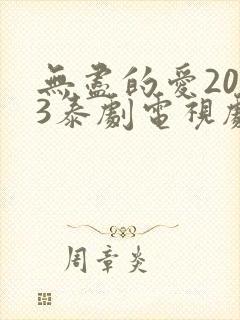 無盡的愛20
3泰劇電視劇
周章炎